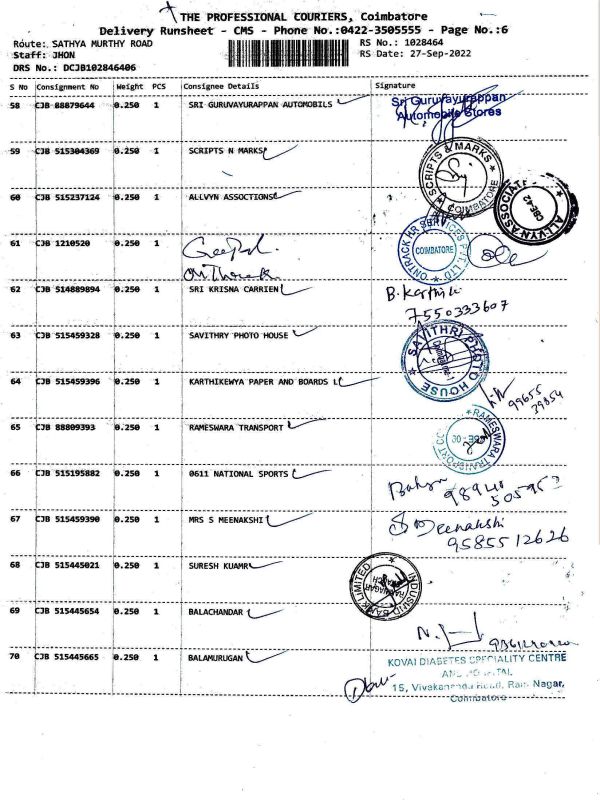 THE PROFESSIONAL COURIERS, Coimbatore
Delivery Runsheet - CMS - Phone No.:0422-3505555 - Page No.:6
Route: SATHYA MURTHY ROAD
RS No.: 1028464
Staff: JHON
RS Date: 27-Sep-2022
DRS No.: DCJB102846406
S No Consignment No Weight PCS Consignee Details Signature
58 CJB 88879644 0.250 1 SRI GURUVAYURAPPAN AUTOMOBILS
Sri Guruvayurappan
Automobile Stores
59 CJB 515304369 0.250 1 SCRIPTS N MARKS
SCRIPTS & MARKS
COIMBATORE
60 CJB 515237124 0.250 1 ALLVYN ASSOCTIONS
ALLVYN ASSOCIAT
CBE-42
61 CJB 1210520 0.250 1
ONTRACK HR SERVICES PVT. LTD
COIMBATORE
62 CJB 514889894 0.250 1 SRI KRISNA CARRIEN
B. Karthik
7550333607
63 CJB 515459328 0.250 1 SAVITHRY PHOTO HOUSE
SAVITHRI PHOTO HOUSE
64 CJB 515459396 0.250 1 KARTHIKEWYA PAPER AND BOARDS L
99655
39854
65 CJB 88809393 0.250 1 RAMESWARA TRANSPORT
RAMESWARA TRANSPORT CO
66 CJB 515195882 0.250 1 0611 NATIONAL SPORTS
67 CJB 515459390 0.250 1 MRS S MEENAKSHI
S Meenakshi
9585512626
68 CJB 515445021 0.250 1 SURESH KUAMR
INDUSIND BANK LIMITED
69 CJB 515445654 0.250 1 BALACHANDAR
70 CJB 515445665 0.250 1 BALAMURUGAN
KOVAI DIABETES SPECIALITY CENTRE
15, Vivekananda Road, Ram Nagar,
Coimbatore